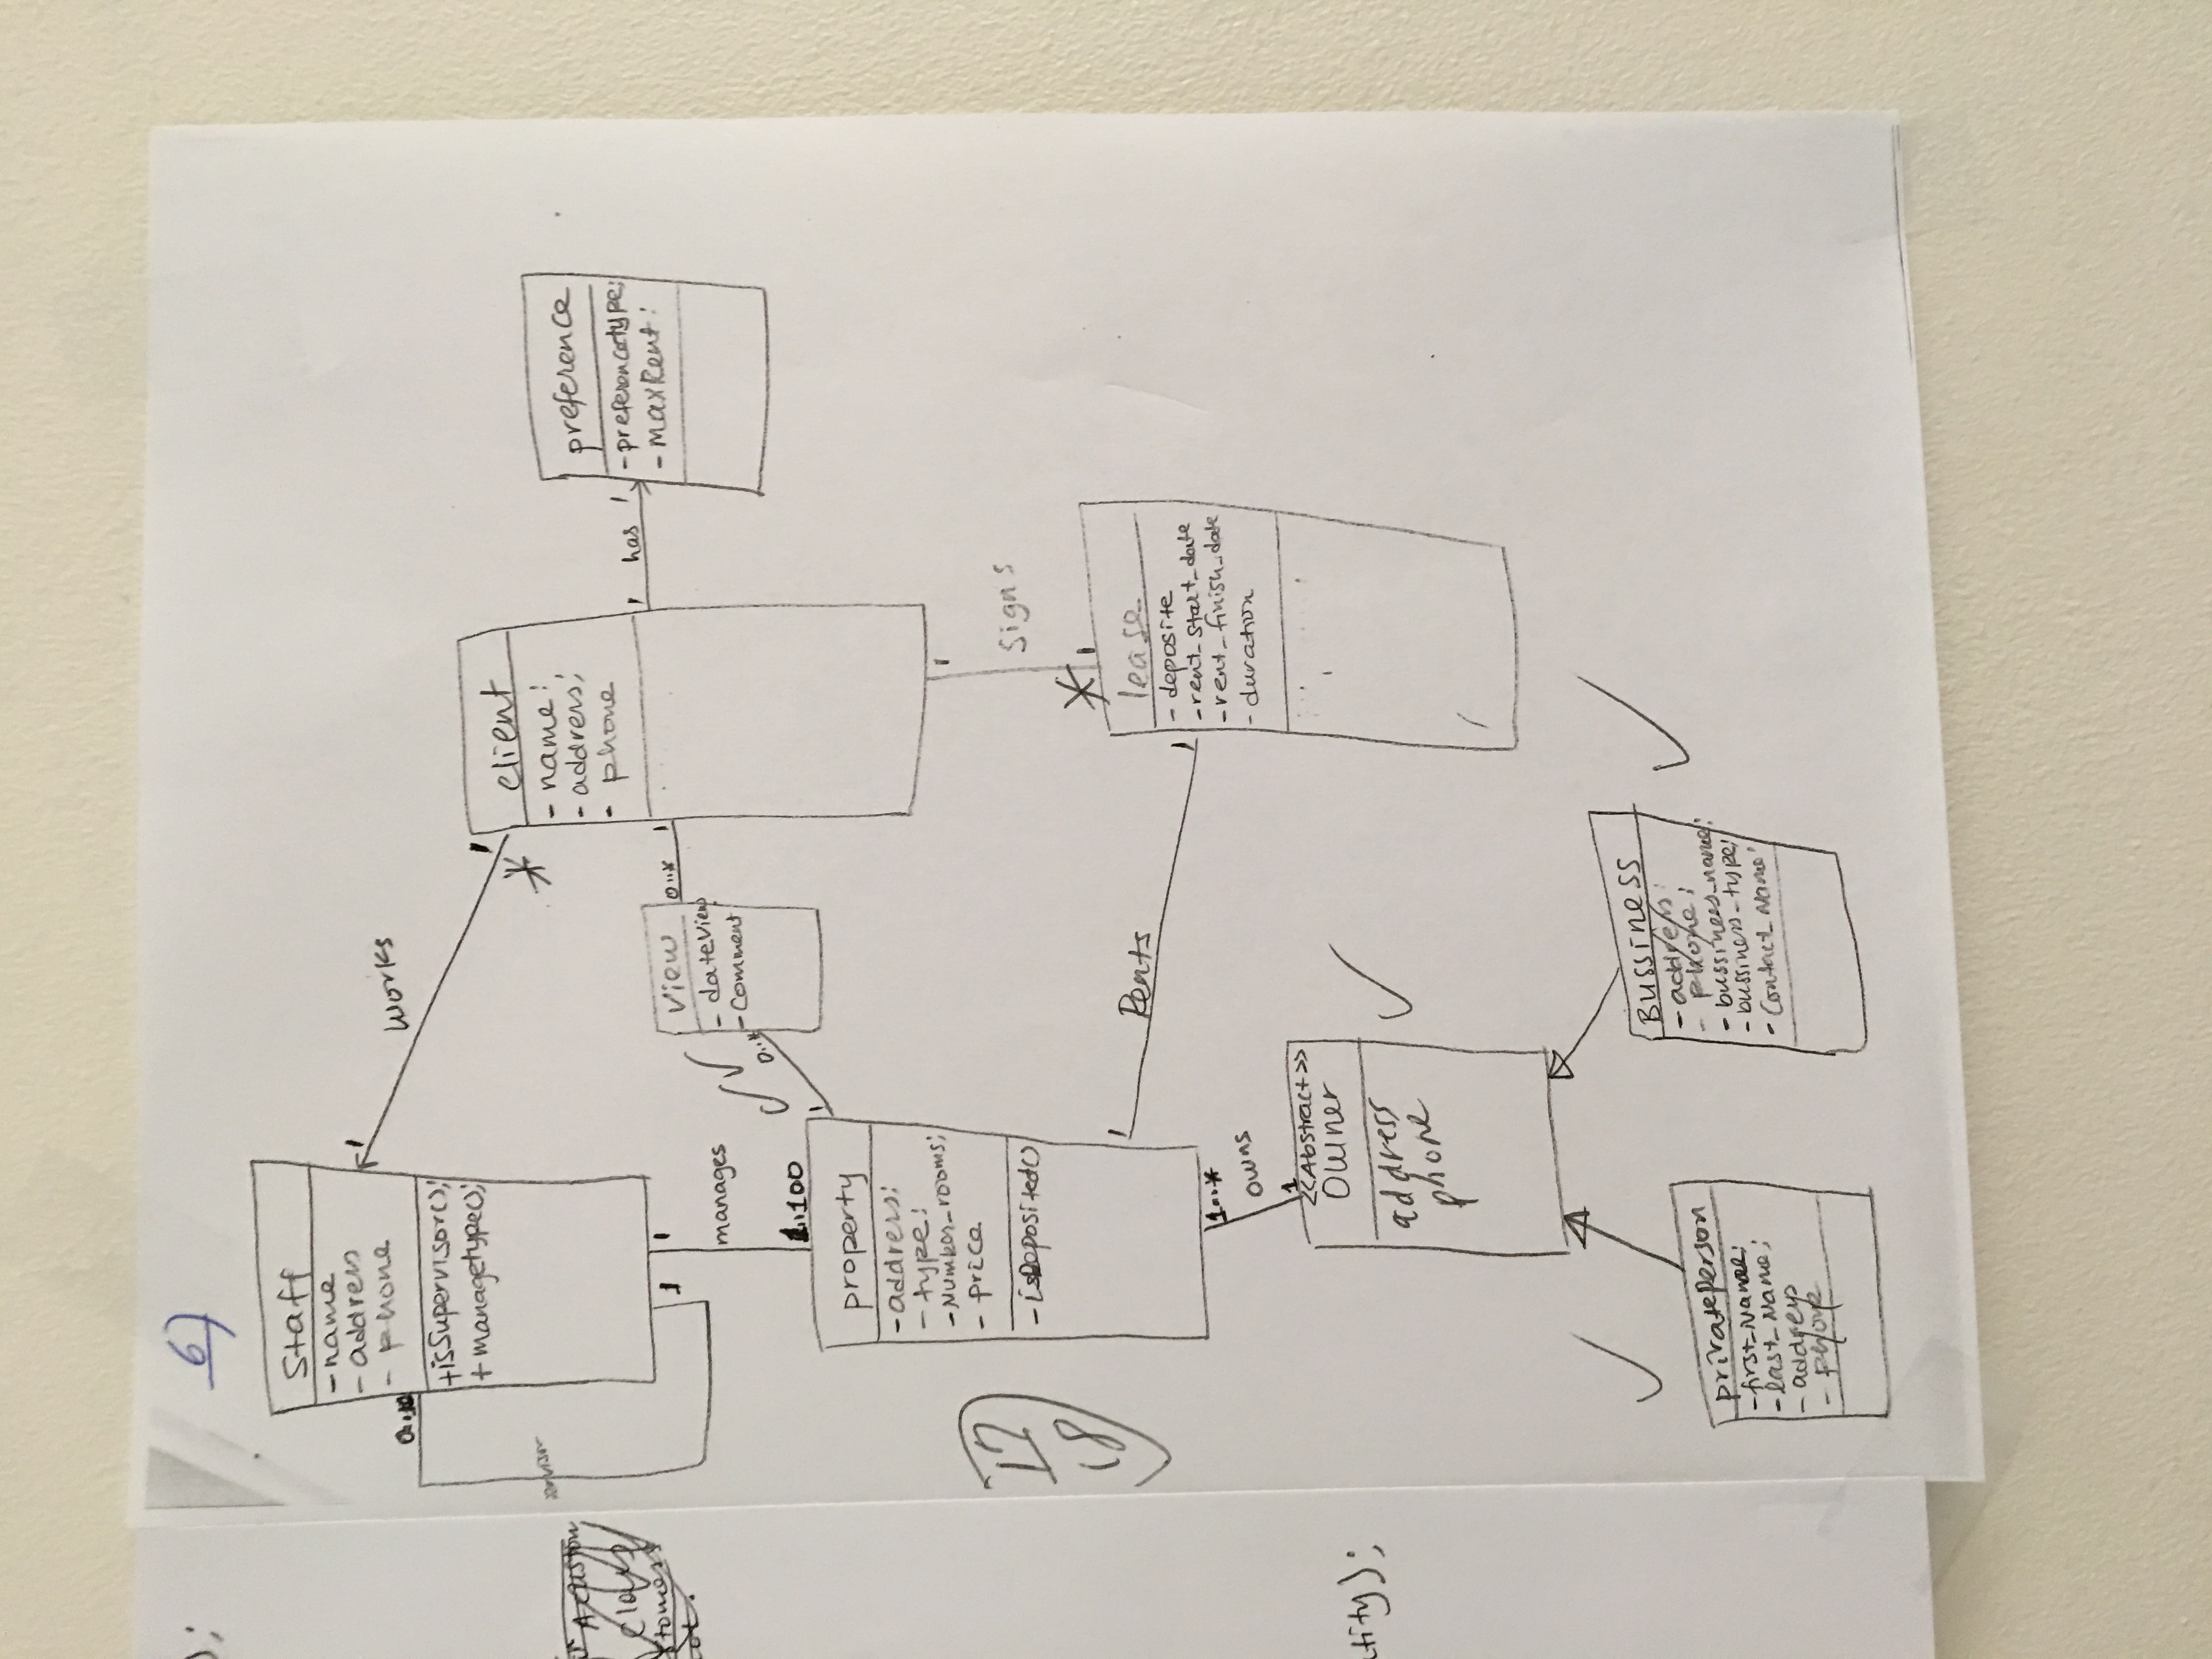 6)
Staff
- name
- address
- phone
+ isSupervisor();
+ managetype();
0..10
1
works
1
1
*
client
- name:
- address;
- phone
preference
- preferencetype;
- maxRent:
1
has
1
view
- dateView
- Comment
0..*
1
0..*
1
1
manages
1..100
property
- address;
- type:
- Number_rooms;
- price
- isDeposited()
17
18
1
Signs
*
1
1
Rents
1
lease
- deposite
- rent_start_date
- rent_finish_date
- duration
1..*
owns
1
<<Abstract>>
Owner
address
phone
privatePerson
- first_Name;
- last_Name;
- address
- phone
Bussiness
- address:
- phone;
- bussiness_name:
- bussiness_type;
- Contact_Name:
);
A custom
tity);